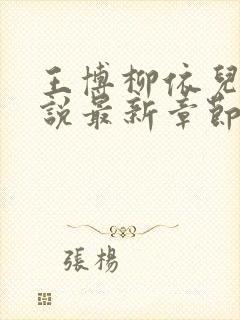 王博柳依兒
說最新章節
張楊